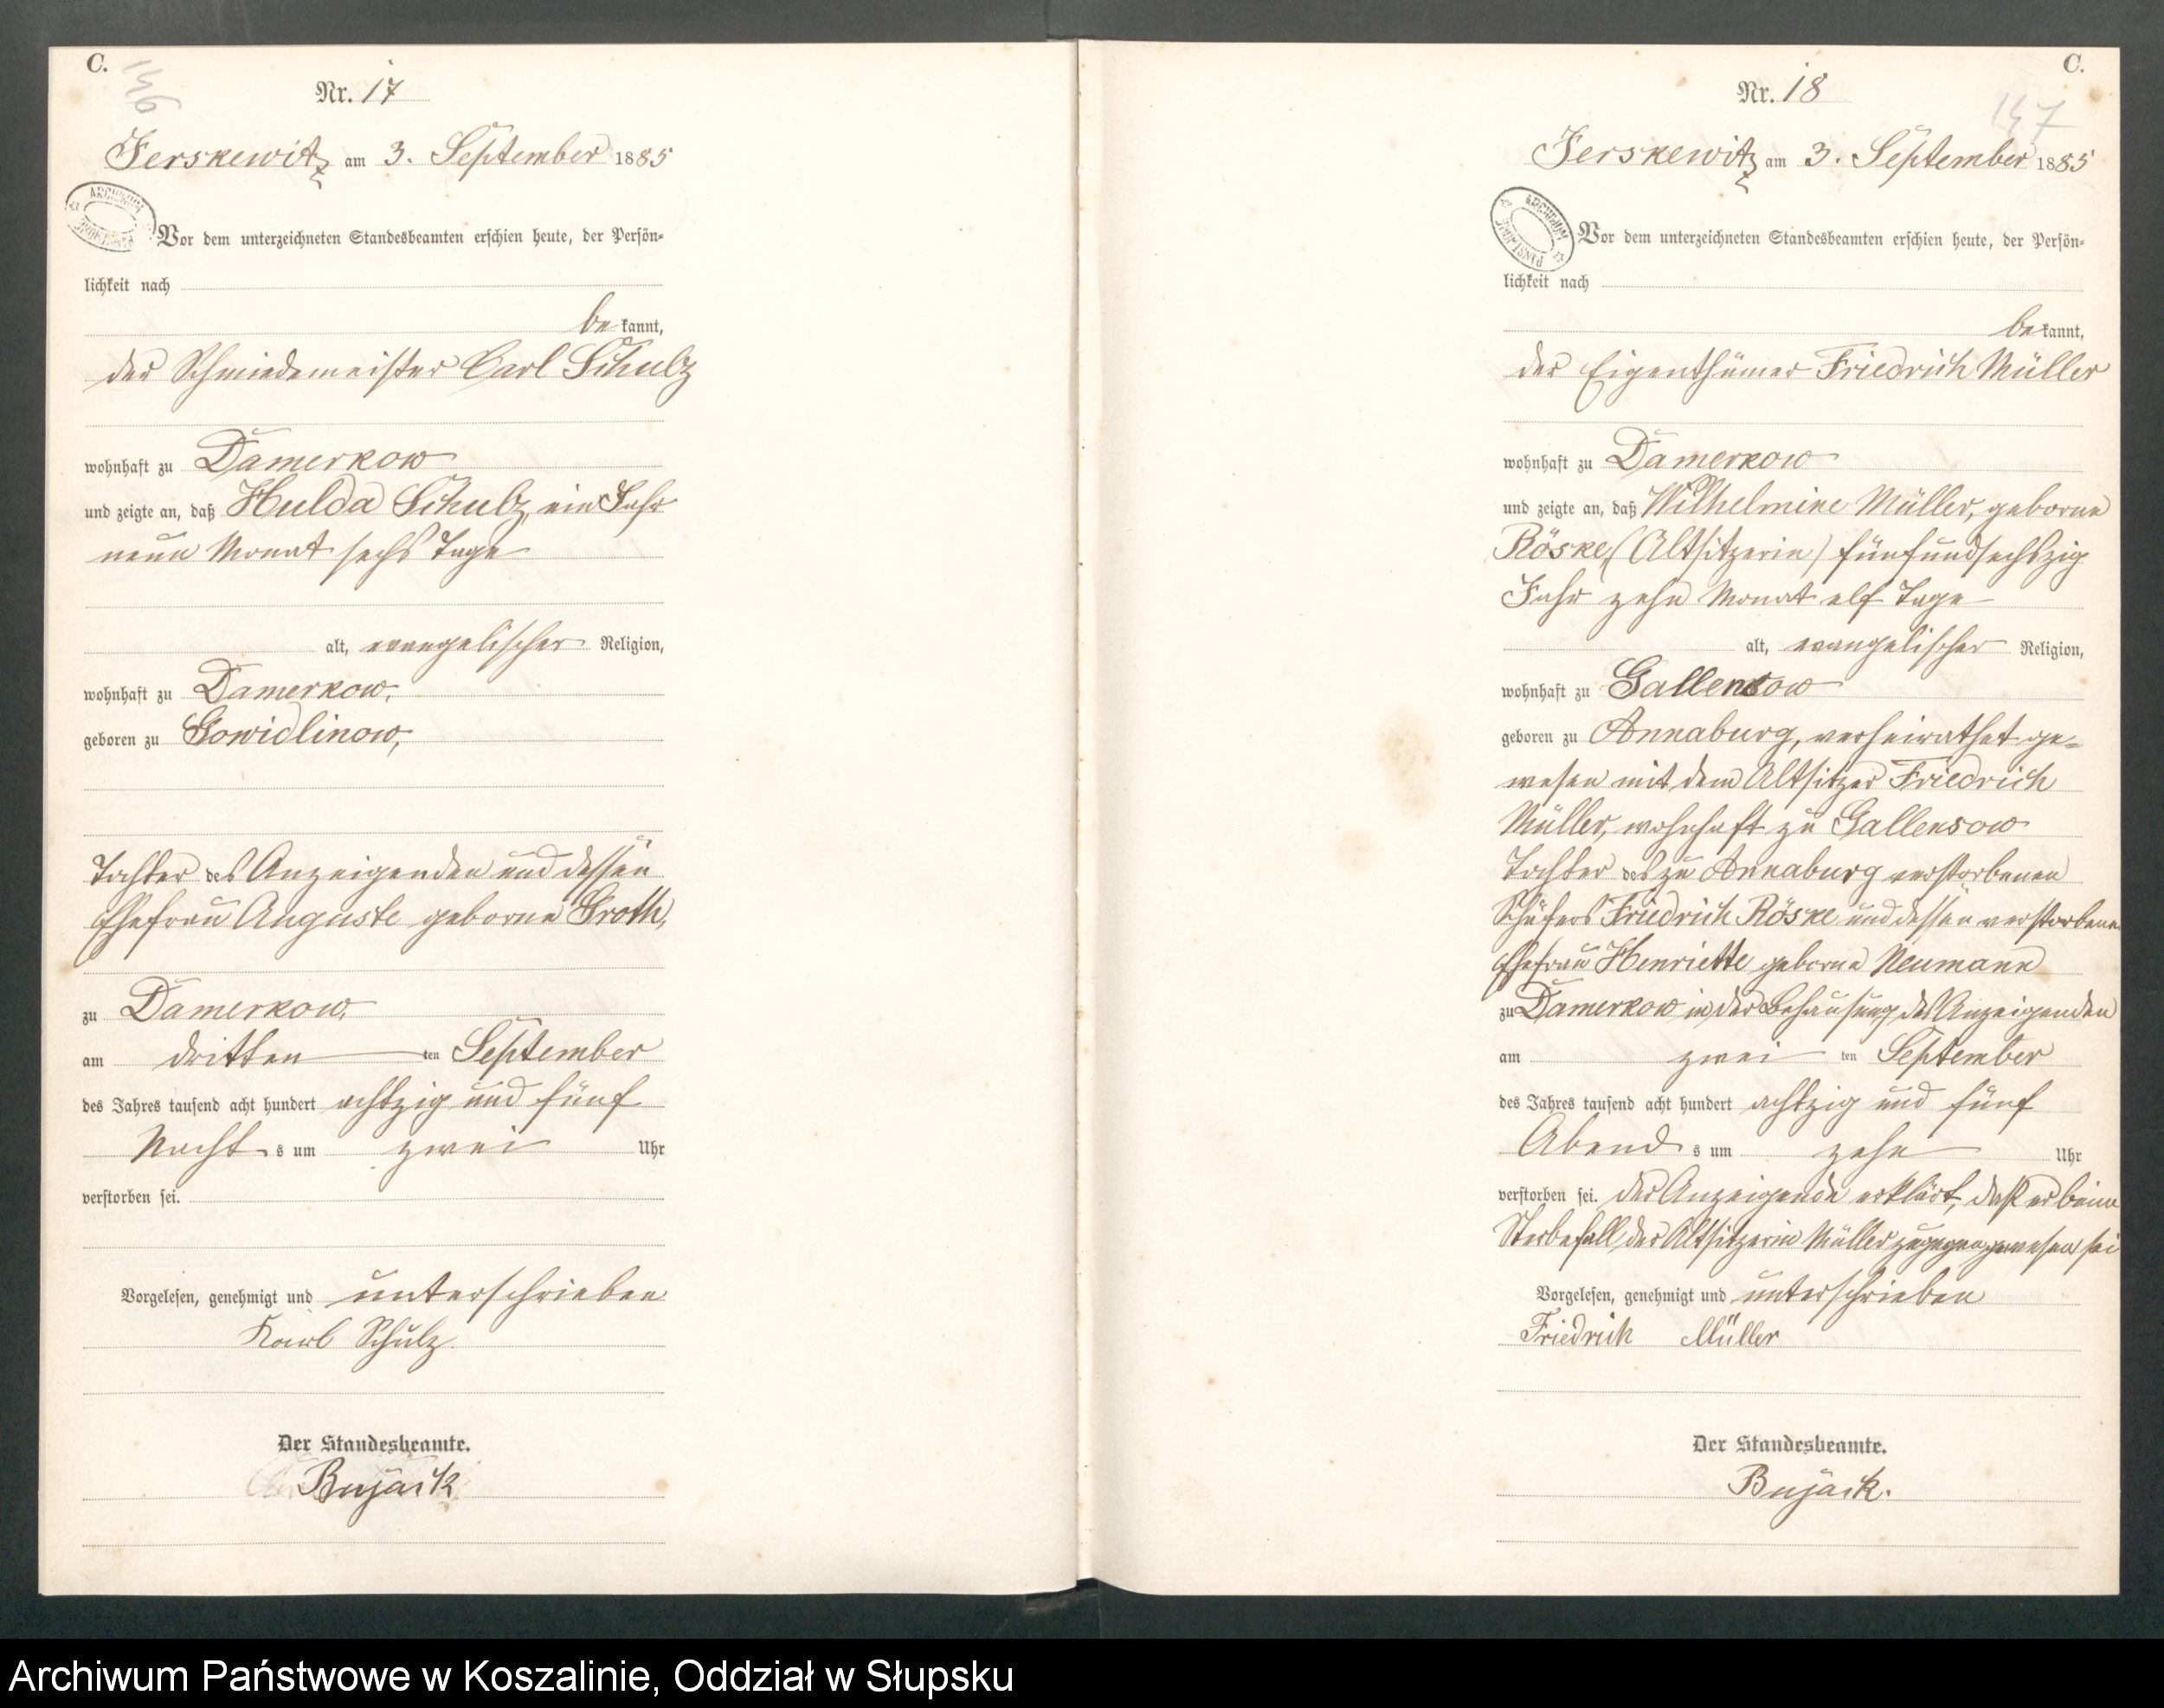 C.
146
Nr. 17
Jerskewitz am 3. September 1885
ARCHIWUM PAŃSTWOWE
Vor dem unterzeichneten Standesbeamten erschien heute, der Persön-
lichkeit nach
bekannt,
der Schmiedemeister Carl Schulz
wohnhaft zu Damerkow
und zeigte an, daß Hulda Schulz, ein Jahr
neun Monat sechs Tage
alt, evangelischer Religion,
wohnhaft zu Damerkow,
geboren zu Gowidlinow,
Tochter des Anzeigenden und dessen
Ehefrau Auguste geborne Groth,
zu Damerkow,
am dritten ten September
des Jahres tausend acht hundert achtzig und fünf
Nachts um zwei Uhr
verstorben sei.
Vorgelesen, genehmigt und unterschrieben
Karl Schulz.
Der Standesbeamte.
Bujack
C.
147
Nr. 18
Jerskewitz am 3. September 1885
ARCHIWUM PAŃSTWOWE
Vor dem unterzeichneten Standesbeamten erschien heute, der Persön-
lichkeit nach
bekannt,
der Eigenthümer Friedrich Müller
wohnhaft zu Damerkow
und zeigte an, daß Wilhelmine Müller, geborne
Röske, (Altsitzerin) fünfundsechszig
Jahr zehn Monat elf Tage
alt, evangelischer Religion,
wohnhaft zu Gallensow
geboren zu Annaburg, verheirathet ge-
wesen mit dem Altsitzer Friedrich
Müller, wohnhaft zu Gallensow
Tochter des zu Annaburg verstorbenen
Schäfers Friedrich Röske und dessen verstorbene
Ehefrau Henriette geborne Neumann
zu Damerkow in der Behausung des Anzeigenden
am zwei ten September
des Jahres tausend acht hundert achtzig und fünf
Abends um zehn Uhr
verstorben sei. Der Anzeigende erklärt, daß er beim
Sterbefall der Altsitzerin Müller zugegen gewesen sei
Vorgelesen, genehmigt und unterschrieben
Friedrich Müller
Der Standesbeamte.
Bujack.
Archiwum Państwowe w Koszalinie, Oddział w Słupsku